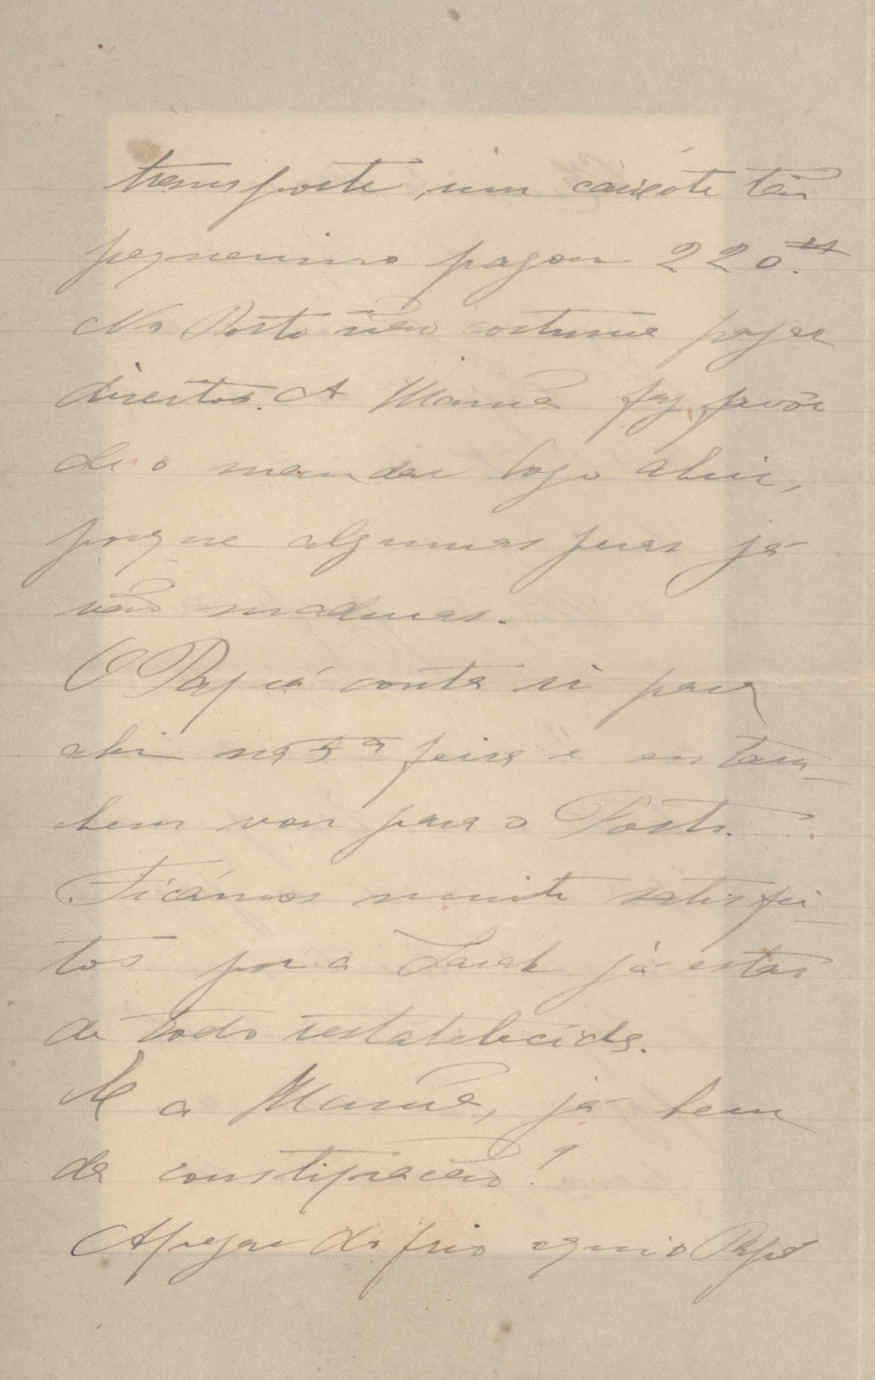 transporte, um caixote tão
pequenino pagou 220.rs
No Porto não costuma pagar
direitos. A Mamã faz favôr
de o mandar logo abrir,
porque algumas peras já
vão maduras.
O Papá conta ir para
ahi na 5ª feira e eu tam
bem vou para o Porto.
Ficámos muito satisfei
tos por a Sarah já estar
de todo restabelecida.
E a Mamã, já bem
da constipação?
Apezar do frio aqui o Papá